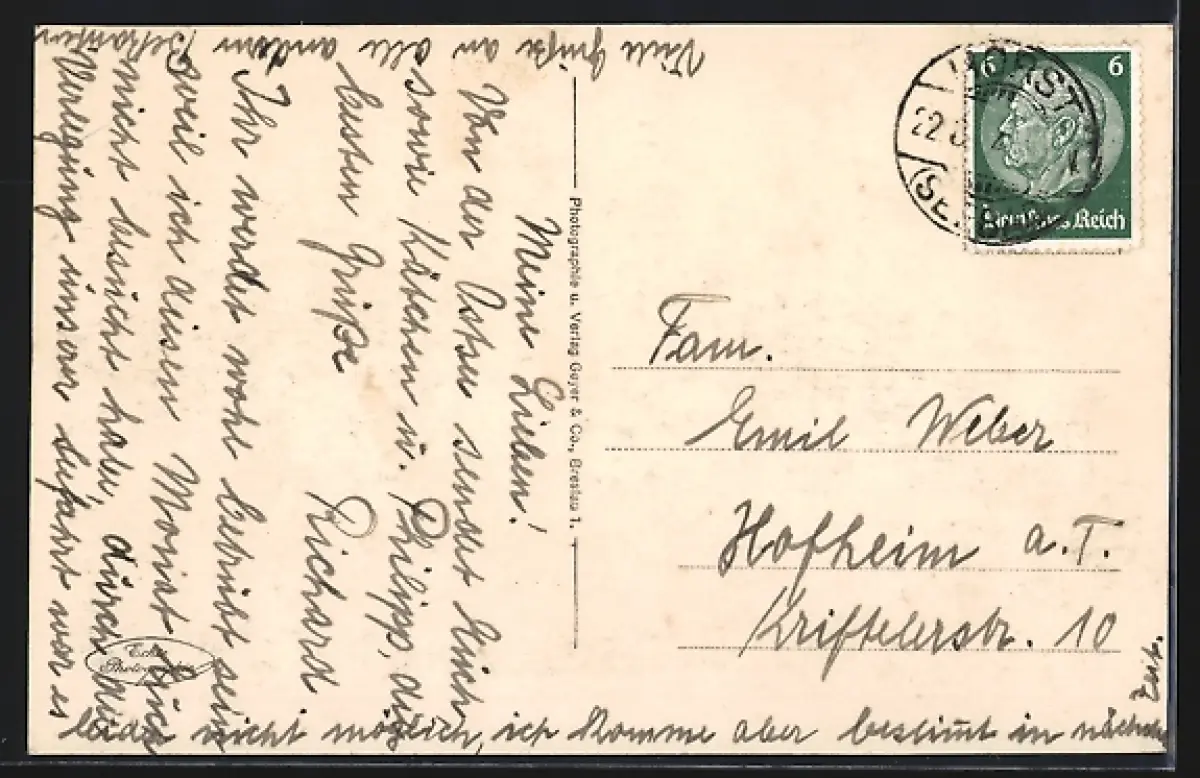 Meine Lieben!
Von der Ostsee sendet Euch
sowie Kätchen u. Philipp, die
besten Grüße
Richard
Ihr werdet wohl betrübt sein
weil ich diesen Monat Euch
nicht besucht habe, durch die
Verlegung unserer Luftfahrt war es
leider nicht möglich, ich komme aber bestimmt in nächster
Zeit.
Viele Grüße an alle andern Bekannten
Photographie u. Verlag Geyer & Co., Breslau 1.
Echte
Photographie
6 6
Deutsches Reich
HORST
22.
(SE
Fam.
Emil Weber
Hofheim a.T.
Kriftelerstr. 10